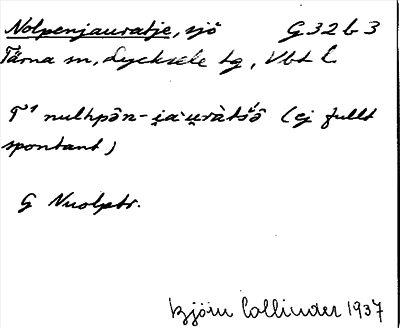 Nolpenjauratje, sjö G32b3
Tärna sn, Lycksele lg, Vbt L.
nulhpôn-
(ej fullt
spontant)
G Nuolptr.
Björn Collinder 1937